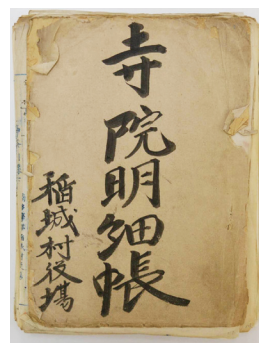 寺院明細帳
稲城村役場